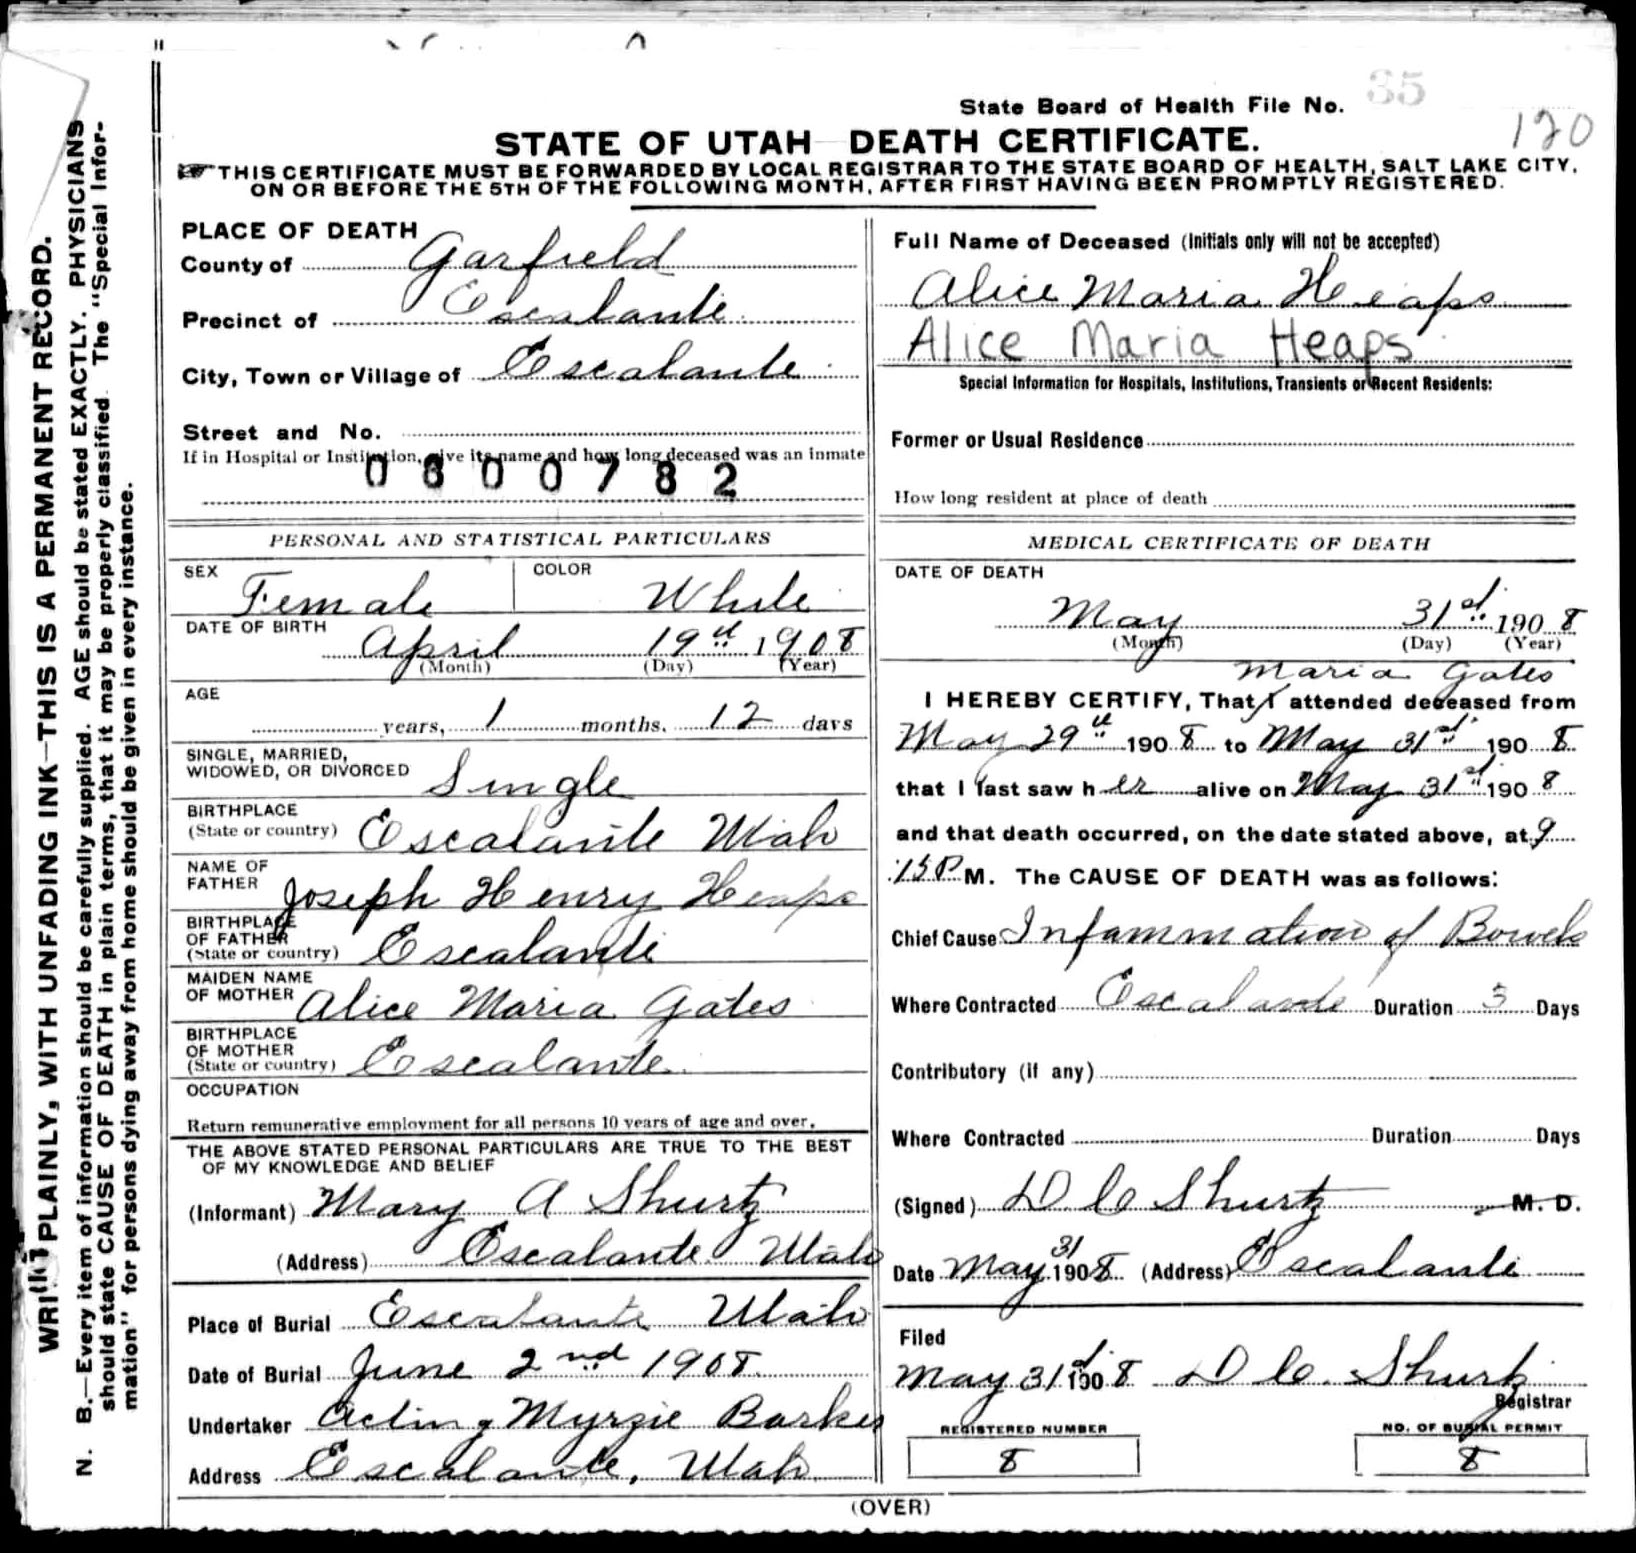 State Board of Health File No. 35
120
STATE OF UTAH DEATH CERTIFICATE.
THIS CERTIFICATE MUST BE FORWARDED BY LOCAL REGISTRAR TO THE STATE BOARD OF HEALTH, SALT LAKE CITY,
ON OR BEFORE THE 5TH OF THE FOLLOWING MONTH, AFTER FIRST HAVING BEEN PROMPTLY REGISTERED.
WRITE PLAINLY, WITH UNFADING INK—THIS IS A PERMANENT RECORD.
N. B.—Every item of information should be carefully supplied. AGE should be stated EXACTLY. PHYSICIANS
should state CAUSE OF DEATH in plain terms, that it may be properly classified. The "Special Infor-
mation" for persons dying away from home should be given in every instance.
PLACE OF DEATH
County of Garfield
Precinct of Escalante
City, Town or Village of Escalante
Street and No.
If in Hospital or Institution, give its name and how long deceased was an inmate
0600782
PERSONAL AND STATISTICAL PARTICULARS
SEX Female COLOR White
DATE OF BIRTH April 19th 1908
(Month) (Day) (Year)
AGE
years, 1 months, 12 days
SINGLE, MARRIED,
WIDOWED, OR DIVORCED Single
BIRTHPLACE
(State or country) Escalante Utah
NAME OF
FATHER Joseph Henry Heaps
BIRTHPLACE
OF FATHER
(State or country) Escalante
MAIDEN NAME
OF MOTHER Alice Maria Gates
BIRTHPLACE
OF MOTHER
(State or country) Escalante
OCCUPATION
Return remunerative employment for all persons 10 years of age and over.
THE ABOVE STATED PERSONAL PARTICULARS ARE TRUE TO THE BEST
OF MY KNOWLEDGE AND BELIEF
(Informant) Mary A Shurtz
(Address) Escalante Utah
Place of Burial Escalante Utah
Date of Burial June 2nd 1908
Undertaker Acting Myrzie Barker
Address Escalante, Utah
Full Name of Deceased (Initials only will not be accepted)
Alice Maria Heaps
Alice Maria Heaps
Special Information for Hospitals, Institutions, Transients or Recent Residents:
Former or Usual Residence
How long resident at place of death
MEDICAL CERTIFICATE OF DEATH
DATE OF DEATH
May 31st 1908
(Month) (Day) (Year)
Maria Gates
I HEREBY CERTIFY, That I attended deceased from
May 29th 1908 to May 31st 1908
that I last saw her alive on May 31st 1908
and that death occurred, on the date stated above, at 9
:15 P M. The CAUSE OF DEATH was as follows:
Chief Cause Infammation of Bowels
Where Contracted Escalante Duration 3 Days
Contributory (if any)
Where Contracted Duration Days
(Signed) D. C Shurtz M. D.
Date May 31 1908 (Address) Escalante
Filed
May 31st 1908 D C. Shurtz
Registrar
REGISTERED NUMBER
8
NO. OF BURIAL PERMIT
8
(OVER)